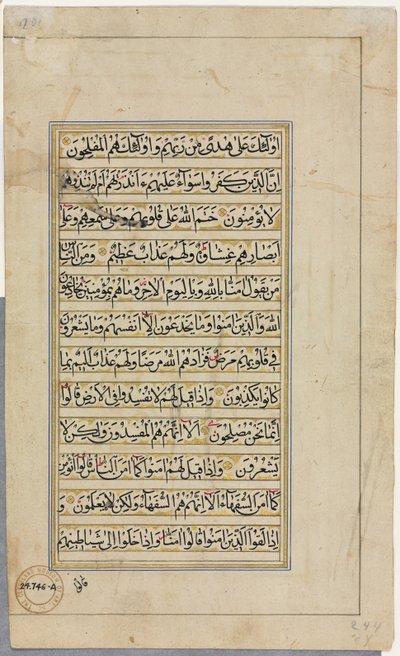 اولٓئك على هدًى من ربهم واولٓئك هم المفلحون
ان الذين كفروا سوآء عليهم ءانذرتهم ام لم تنذرهم
لا يؤمنون ختم الله على قلوبهم وعلى سمعهم وعلى
ابصارهم غشاوة ولهم عذاب عظيم ومن الناس
من يقول امنا بالله وباليوم الاخر وما هم بمؤمنين يخادعون
الله والذين امنوا وما يخدعون الا انفسهم وما يشعرون
في قلوبهم مرض فزادهم الله مرضا ولهم عذاب اليم بما
كانوا يكذبون واذا قيل لهم لا تفسدوا في الارض قالوا
انما نحن مصلحون الا انهم هم المفسدون ولكن لا
يشعرون واذا قيل لهم امنوا كما امن الناس قالوا انؤمن
كما امن السفهآء الا انهم هم السفهآء ولكن لا يعلمون و
اذا لقوا الذين امنوا قالوا امنا واذا خلوا الى شياطينهم
قالوا
24.746-A
244